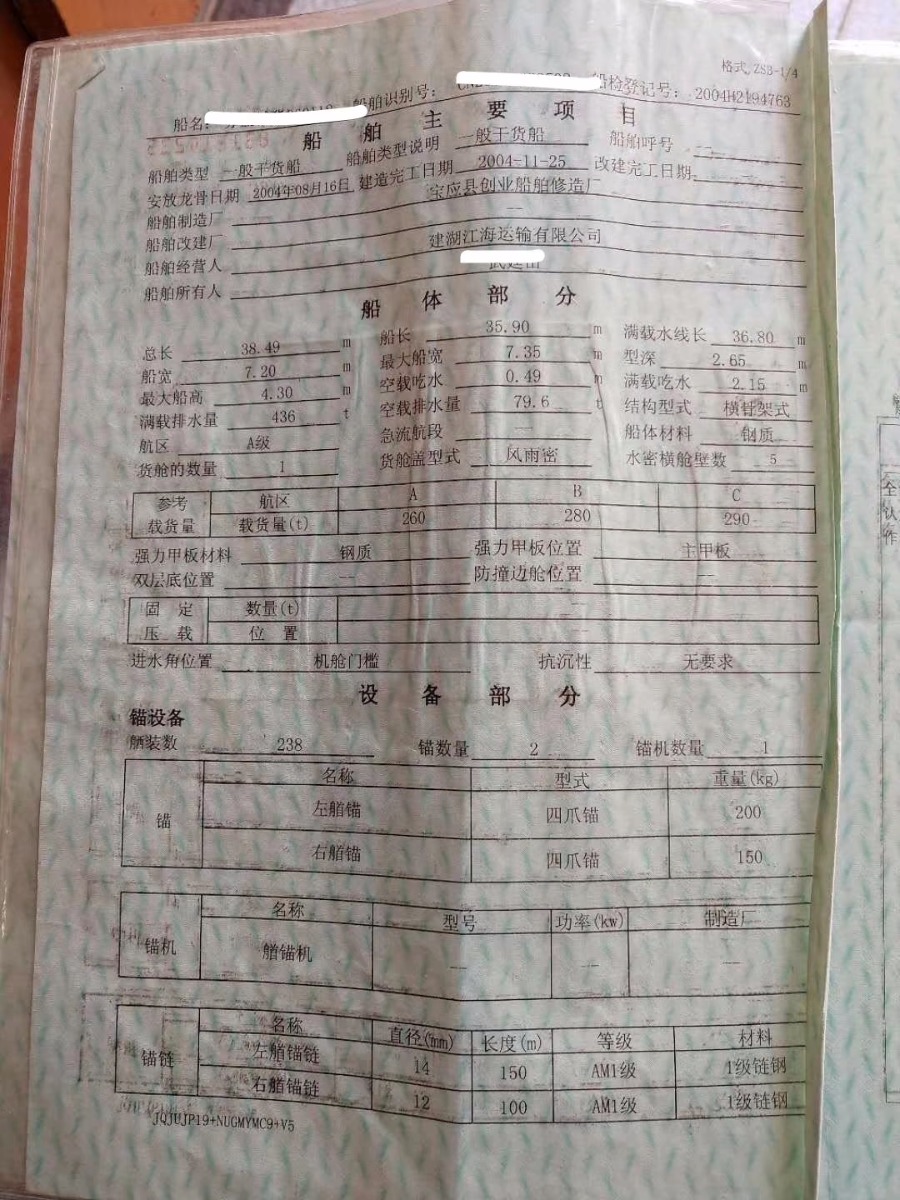 格式 ZSB-1/4
船名: 船舶识别号: 船检登记号: 2004H2194763
船舶主要项目
船舶类型 一般干货船 船舶类型说明 一般干货船 船舶呼号 --
安放龙骨日期 2004年08月16日 建造完工日期 2004-11-25 改建完工日期 --
船舶制造厂 宝应县创业船舶修造厂
船舶改建厂 --
船舶经营人 建湖江海运输有限公司
船舶所有人
船体部分
总长 38.49 m 船长 35.90 m 满载水线长 36.80 m
船宽 7.20 m 最大船宽 7.35 m 型深 2.65 m
最大船高 4.30 m 空载吃水 0.49 m 满载吃水 2.15 m
满载排水量 436 t 空载排水量 79.6 t 结构型式 横骨架式
航区 A级 急流航段 -- 船体材料 钢质
货舱的数量 1 货舱盖型式 风雨密 水密横舱壁数 5
参考载货量 航区 A B C
载货量(t) 260 280 290
强力甲板材料 钢质 强力甲板位置 主甲板
双层底位置 -- 防撞边舱位置 --
固定压载 数量(t) --
位置 --
进水角位置 机舱门槛 抗沉性 无要求
设备部分
锚设备
舾装数 238 锚数量 2 锚机数量 1
锚 名称 型式 重量(kg)
左艏锚 四爪锚 200
右艏锚 四爪锚 150
锚机 名称 型号 功率(kw) 制造厂
艏锚机 -- -- --
锚链 名称 直径(mm) 长度(m) 等级 材料
左艏锚链 14 150 AM1级 1级链钢
右艏锚链 12 100 AM1级 1级链钢
JQJUJP19+NUGMYMC9+V5